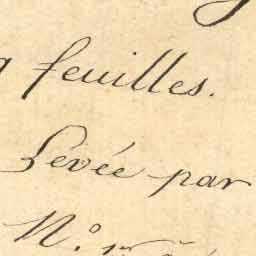 feuilles.
Levée par
N.º